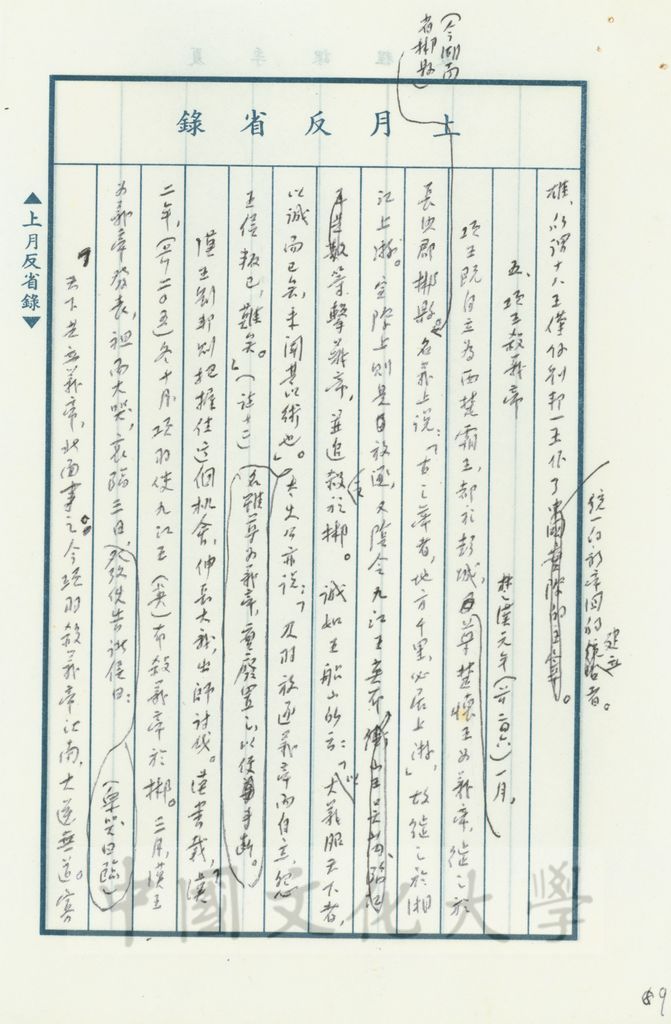 (今湖南省郴縣)
上月反省錄
雄,所謂十八王僅係劉邦一王作了
統一的新帝國的建立者。
五、項王殺義帝
楚漢元年(前二〇六)一月,
項王既自立為西楚霸王,都於彭城,尊楚懷王為義帝,徙之於
長沙郡郴縣。名義上說:「古之帝者,地方千里,必居上游」,故徙之於湘
江上游。實際上則是放逐,又陰令九江王
等擊義帝,並追殺之於郴。誠如王船山所云:「以大義服天下者,
以誠而已矣,未聞其以術也。」太史公亦說:「及羽放逐義帝而自立,怨
王侯叛己,難矣。」(註廿三)名雖尊為義帝,實廢置之以便下手
漢王劉邦則把握住這個機會,伸張大義,出師討伐。漢書載,漢
二年,(前二〇五)冬十月,項羽使九江王(英)布殺義帝於郴。三月,漢王
為義帝發喪,袒而大哭,哀臨三日,發使告諸侯曰:
(眾哭曰臨)
「天下共立義帝,北面事之。今項羽殺義帝江南,大逆無道。寡
▲上月反省錄▼
中國文化大學
9